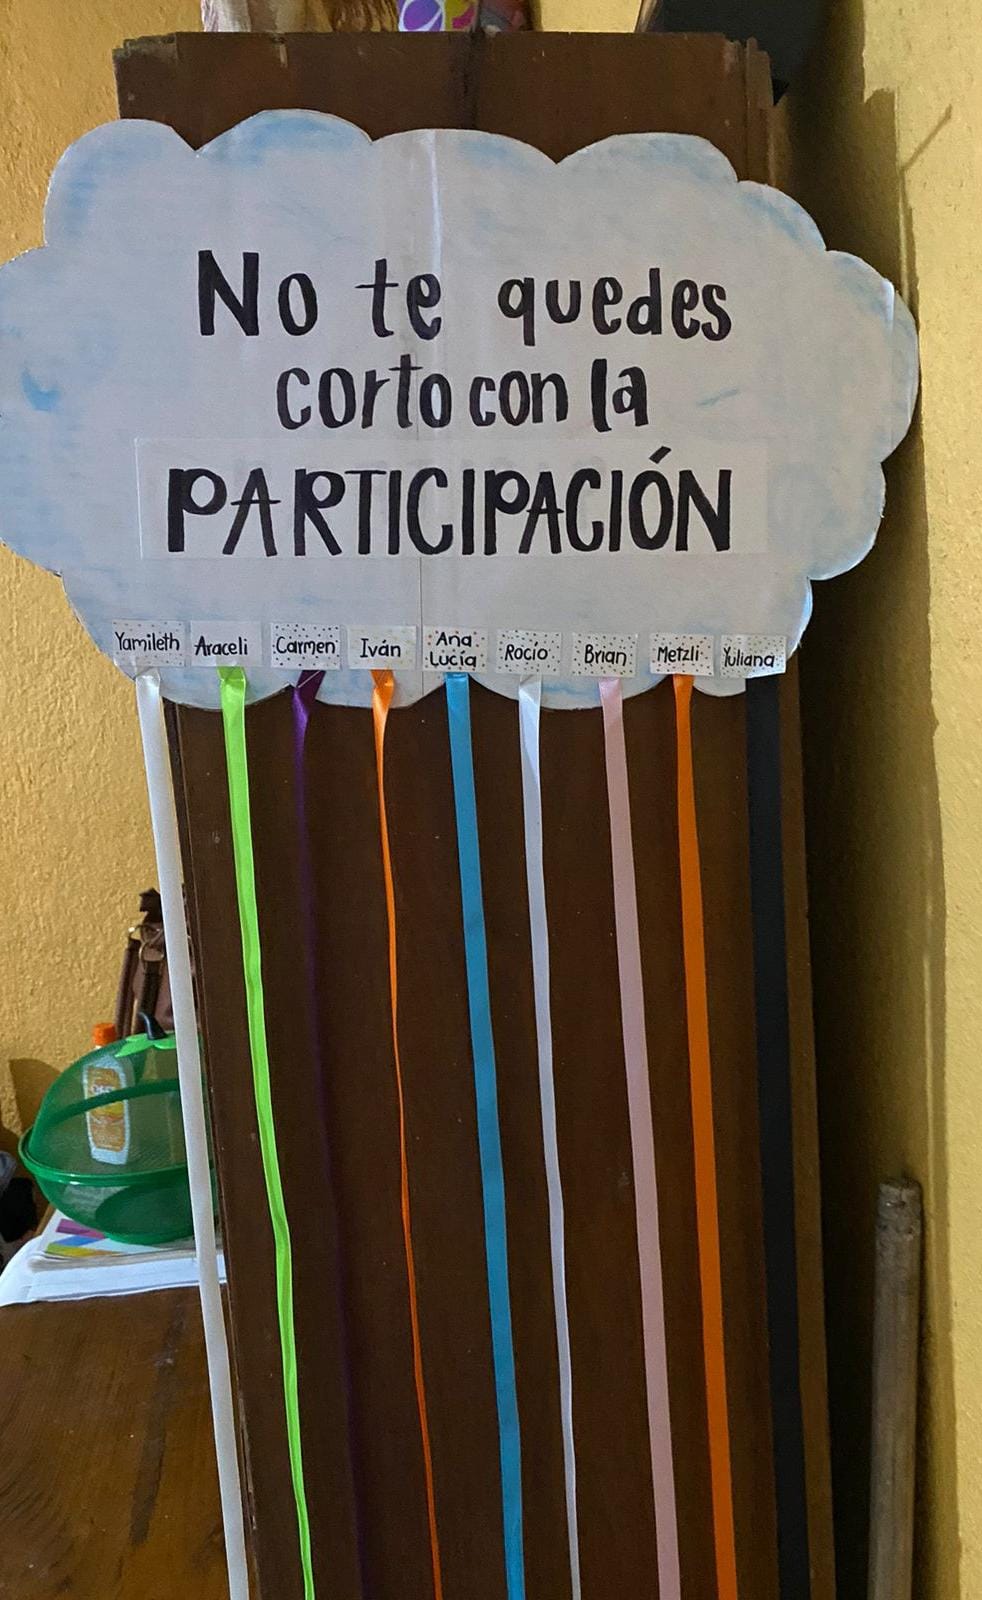 No te quedes
corto con la
PARTICIPACIÓN
Yamileth Araceli Carmen Iván Ana Lucía Rocío Brian Metzli Yuliana